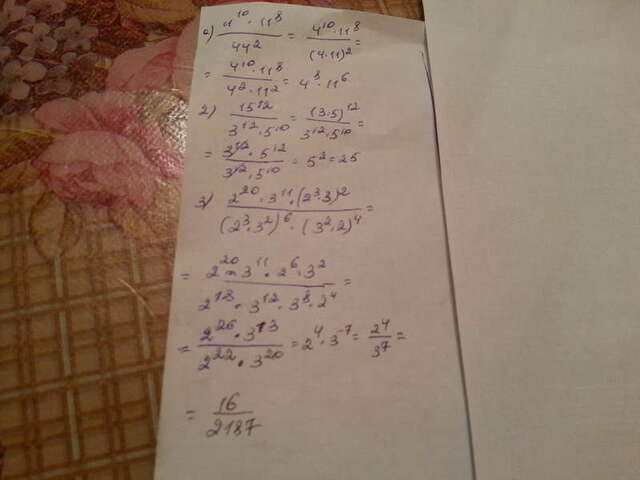 1) 4^10 · 11^8 / 44^2 = 4^10 · 11^8 / (4·11)^2 =
= 4^10 · 11^8 / 4^2 · 11^2 = 4^8 · 11^6
2) 15^12 / 3^12 · 5^10 = (3·5)^12 / 3^12 · 5^10 =
= 3^12 · 5^12 / 3^12 · 5^10 = 5^2 = 25
3) 2^20 · 3^11 · (2^3·3)^2 / (2^3·3^2)^6 · (3^2·2)^4 =
= 2^20 · 3^11 · 2^6 · 3^2 / 2^18 · 3^12 · 3^8 · 2^4 =
= 2^26 · 3^13 / 2^22 · 3^20 = 2^4 · 3^-7 = 2^4 / 3^7 =
= 16 / 2187